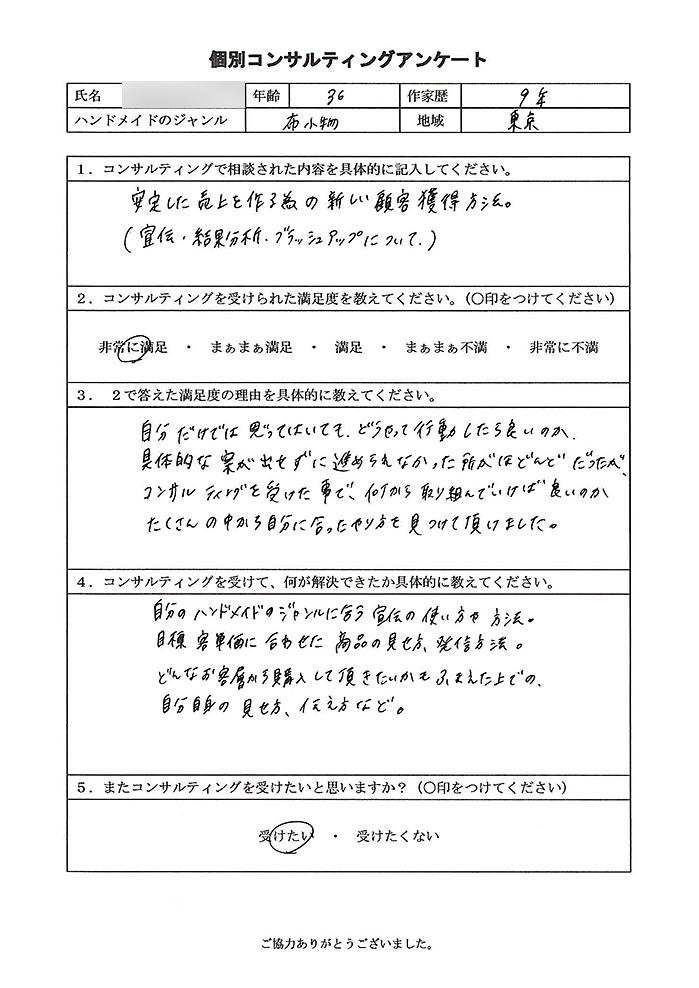 個別コンサルティングアンケート
氏名 年齢 36 作家歴 9年
ハンドメイドのジャンル 布小物 地域 東京
1．コンサルティングで相談された内容を具体的に記入してください。
安定した売上を作る為の新しい顧客獲得方法。
(宣伝・結果分析・ブラッシュアップについて。)
2．コンサルティングを受けられた満足度を教えてください。（〇印をつけてください）
非常に満足 ・ まぁまぁ満足 ・ 満足 ・ まぁまぁ不満 ・ 非常に不満
3． 2で答えた満足度の理由を具体的に教えてください。
自分だけでは思ってはいても、どうやって行動したら良いのか、
具体的な案が出せずに進められなかった所がほとんどだったが、
コンサルティングを受けた事で、何から取り組んでいけば良いのか
たくさんの中から自分に合ったやり方を見つけて頂けました。
4．コンサルティングを受けて、何が解決できたか具体的に教えてください。
自分のハンドメイドのジャンルに合う宣伝の使い方や方法。
目標客単価に合わせた商品の見せ方、発信方法。
どんなお客層から購入して頂きたいかもふまえた上での、
自分自身の見せ方、伝え方など。
5．またコンサルティングを受けたいと思いますか？（〇印をつけてください）
受けたい ・ 受けたくない
ご協力ありがとうございました。